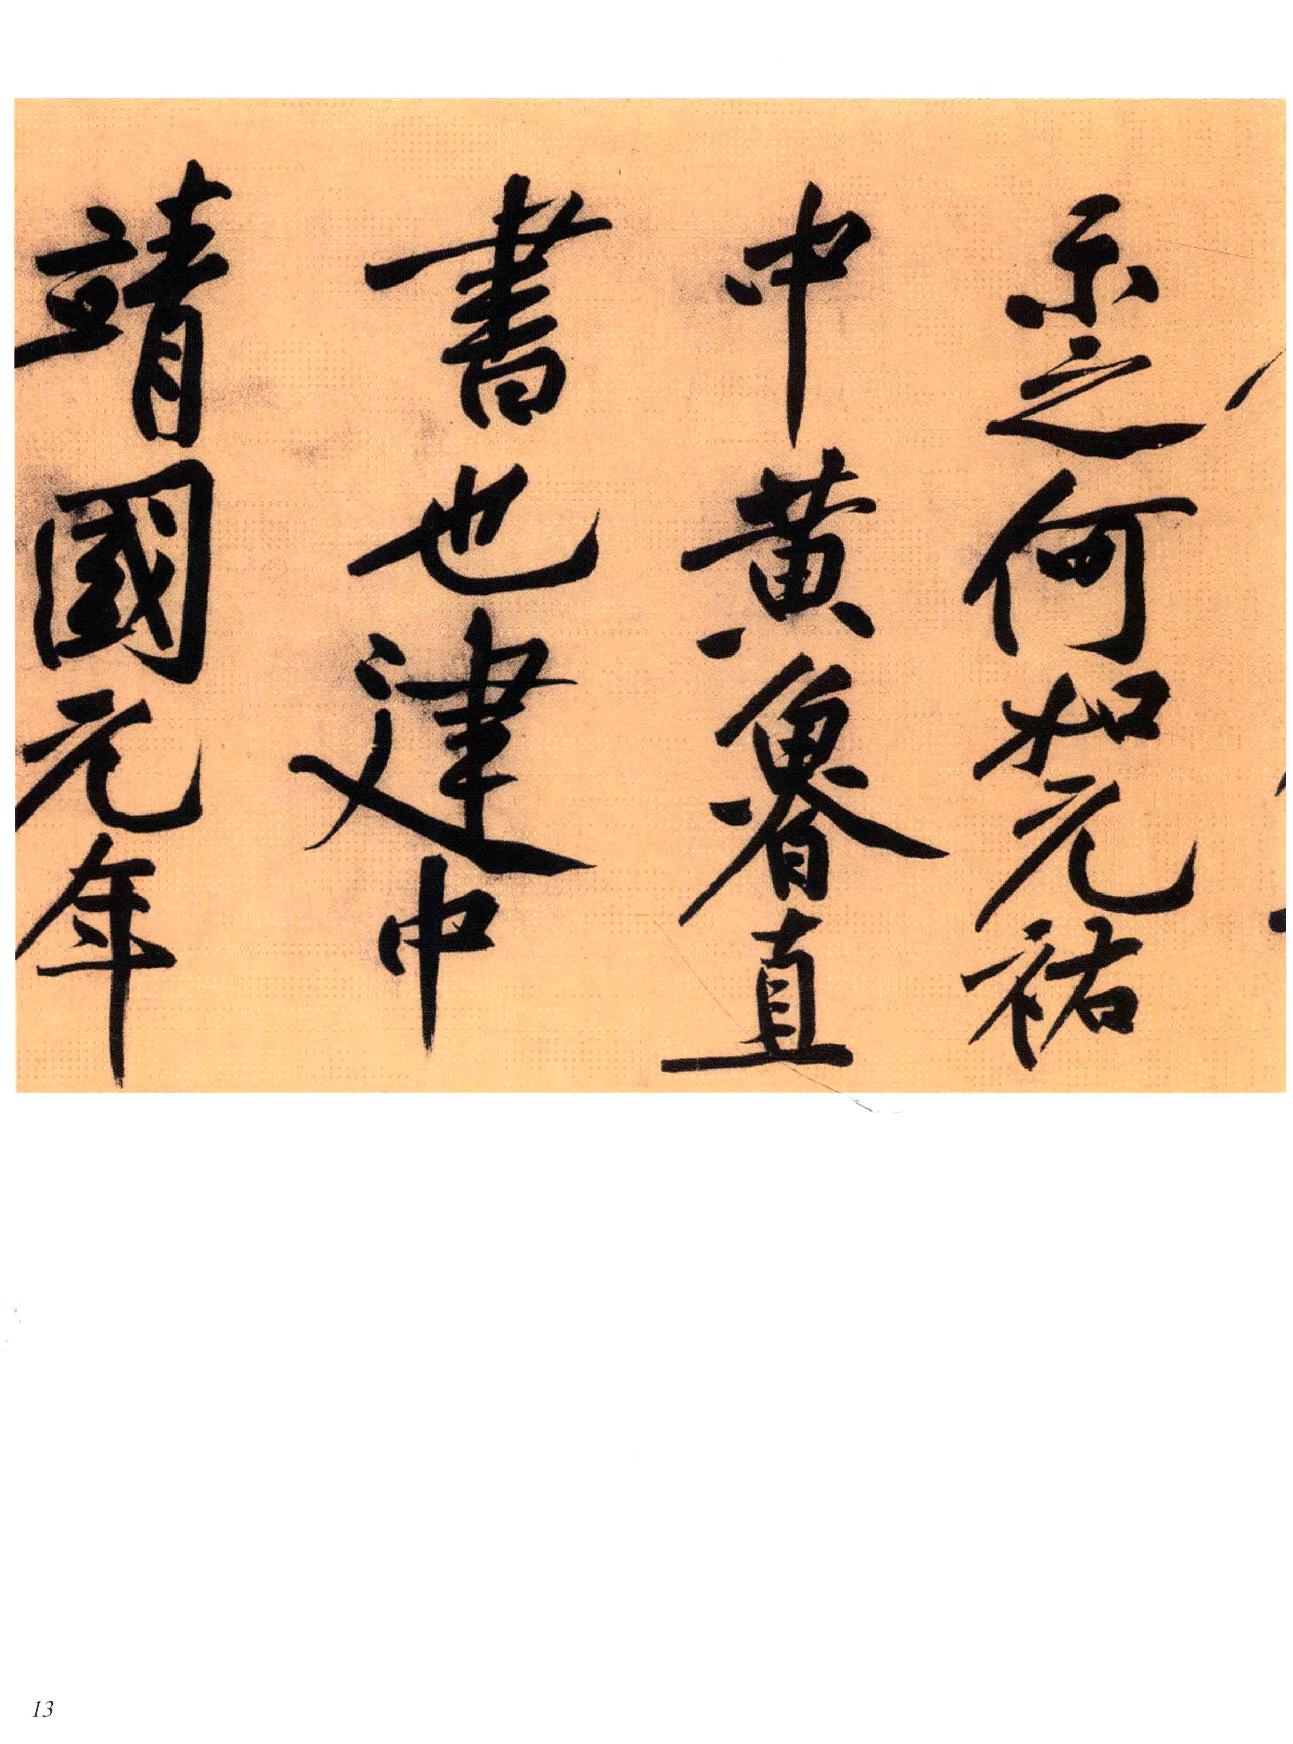 示之何如元祐
中黄魯直
書也建中
靖國元年
13